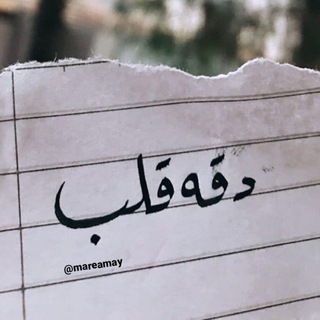 دقه قلب
@mareamay